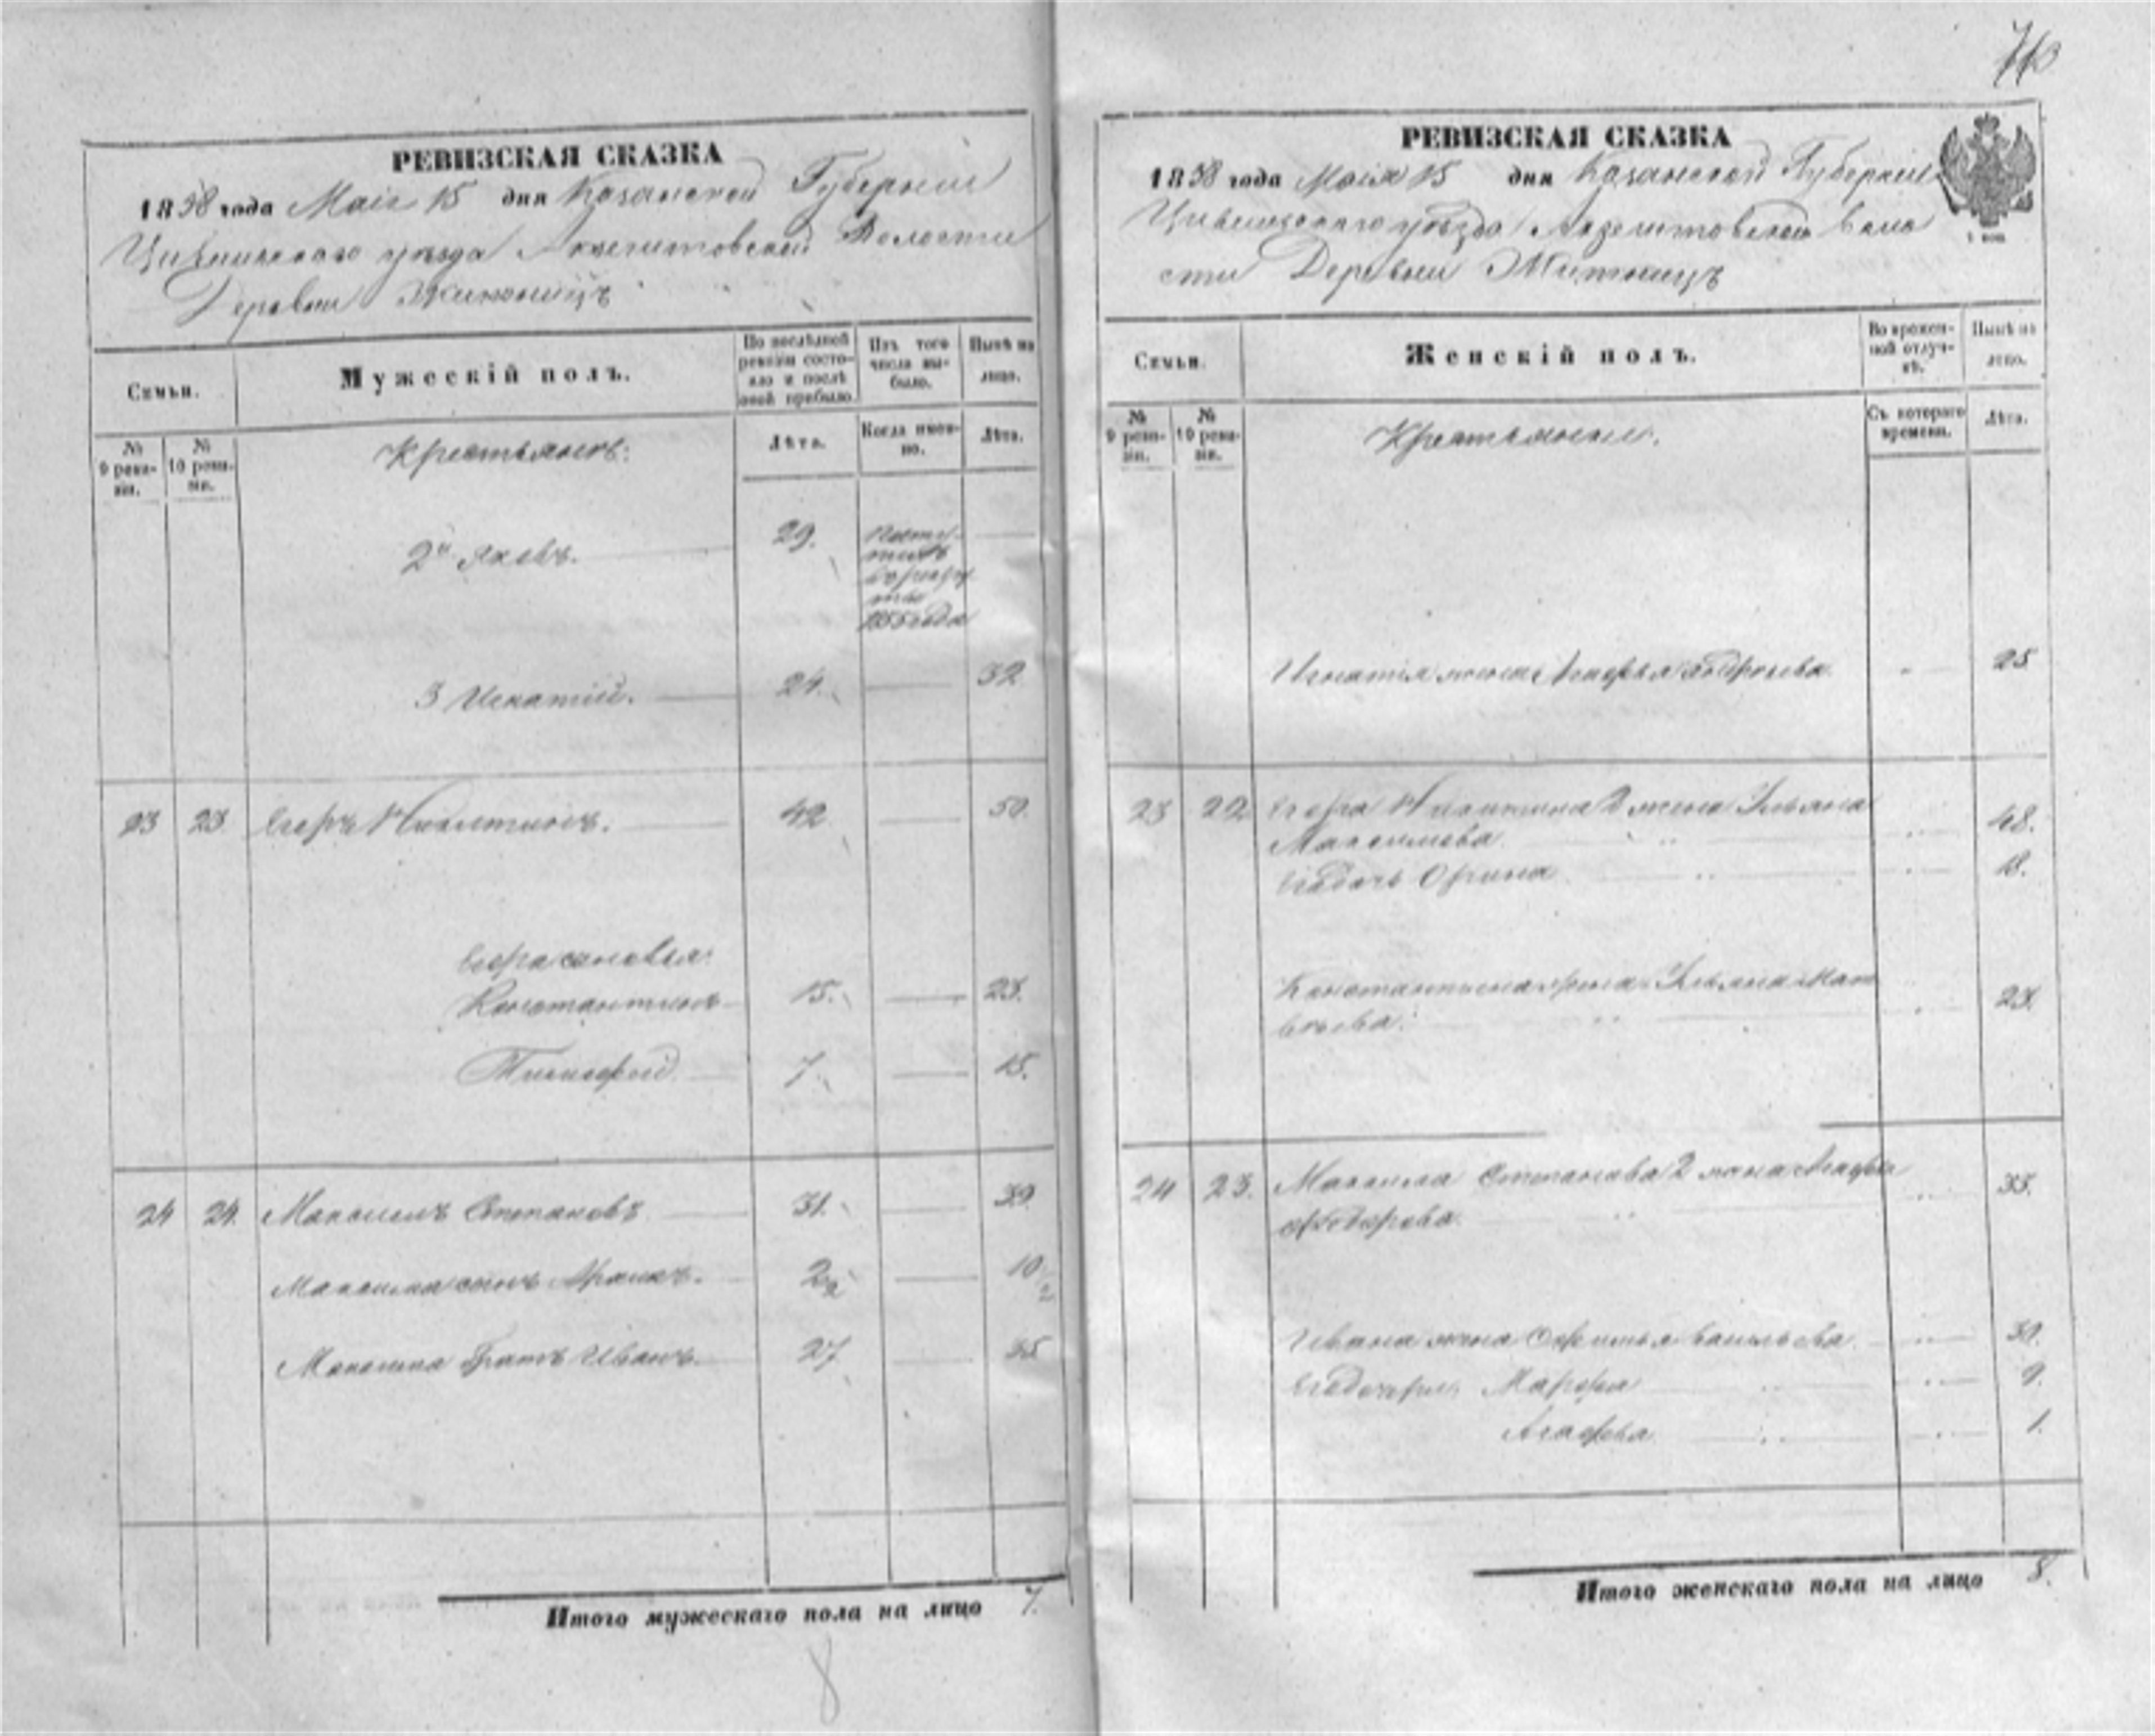 РЕВИЗСКАЯ СКАЗКА
1858 года Маія 15 дня Казанской Губерніи
Цивильскаго уѣзда Волости
Деревни Житницъ
Семьи.
Мужескій полъ.
По послѣдней ревизіи состояло и послѣ оной прибыло.
Изъ того числа выбыло.
Нынѣ на лицо.
№ 9 ревизіи.
№ 10 ревизіи.
Крестьянъ:
Лѣта.
Когда именно.
Лѣта.
2й Яковъ. 29.
1855 года
3 Игнатій. 24. 32
23 23 Егоръ Никитинъ. 42 50.
Егора сыновья:
Константинъ 15. 23.
Тимофей 7. 15.
24 24. Максимъ Степановъ 31. 39
Максима сынъ 2 1/2 10 1/2
Максима братъ Иванъ. 27 35
Итого мужескаго пола на лицо 7.
8
РЕВИЗСКАЯ СКАЗКА
1858 года Маія 15 дня Казанской Губерніи
Цивильскаго уѣзда Воло
сти Деревни Житницъ
Семьи.
Женскій полъ.
Во временной отлучкѣ.
Нынѣ на лицо.
№ 9 ревизіи.
№ 10 ревизіи.
Съ котораго времени.
Лѣта.
Игнатія жена Агафья 25
23 22 Егора Никитина 2 жена Ульяна
Максимова 48.
Егo дочь Орина 18.
Константина жена Ульяна Мат
вѣева. 23.
24 23. Максима Степанова 2 жена Агафья
Ѳедорова 33.
Ивана жена Офимья Васильева 30.
Его дочери: Марфа 9.
Агафья 1.
Итого женскаго пола на лицо 8.